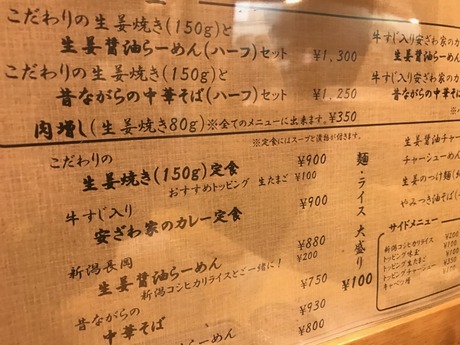 こだわりの生姜焼き(150g)と
生姜醤油らーめん(ハーフ)セット ¥1,300
こだわりの生姜焼き(150g)と
昔ながらの中華そば(ハーフ)セット ¥1,250
肉増し(生姜焼き80g)※全てのメニューに出来ます。¥350
牛すじ入り安ざわ家のカ
生姜醤油らーめ
牛すじ入り安ざわ家のカ
昔ながらの中華そば(
※定食にはスープと漬物が付きます。
こだわりの
生姜焼き(150g)定食 ¥900
おすすめトッピング 生たまご ¥100
牛すじ入り
安ざわ家のカレー定食 ¥900
新潟長岡
生姜醤油らーめん ¥880
新潟コシヒカリライスとご一緒に! ¥200
昔ながらの ¥750
中華そば ¥930
らーめん ¥800
麺・ライス大盛り ¥100
生姜醤油チャー
チャーシューめん
生姜のつけ麺(
やみつき油そば(
サイドメニュー
新潟コシヒカリライス ¥200
トッピング味玉 ¥100
トッピング生たまご ¥100
トッピングチャーシュー ¥350
キャベツ増 ¥100